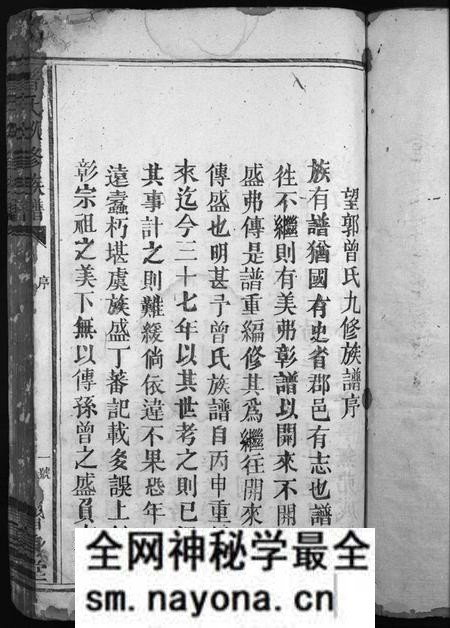 望郭曾氏九修族譜序
族有譜猶國有史省郡邑有志也譜
徃不繼則有美弗彰譜以開來不開
盛弗傳是譜重編修其爲繼往開來
傳盛也明甚于曾氏族譜自丙申重
來迄今三十七年以其世考之則已
其事計之則難緩倘依違不果恐年
遠蠹朽堪虞族盛丁蕃記載多誤上
彰宗祖之美下無以傳孫曾之盛負
氏九修族譜
序
一號
全网神秘学最全
sm.nayona.cn